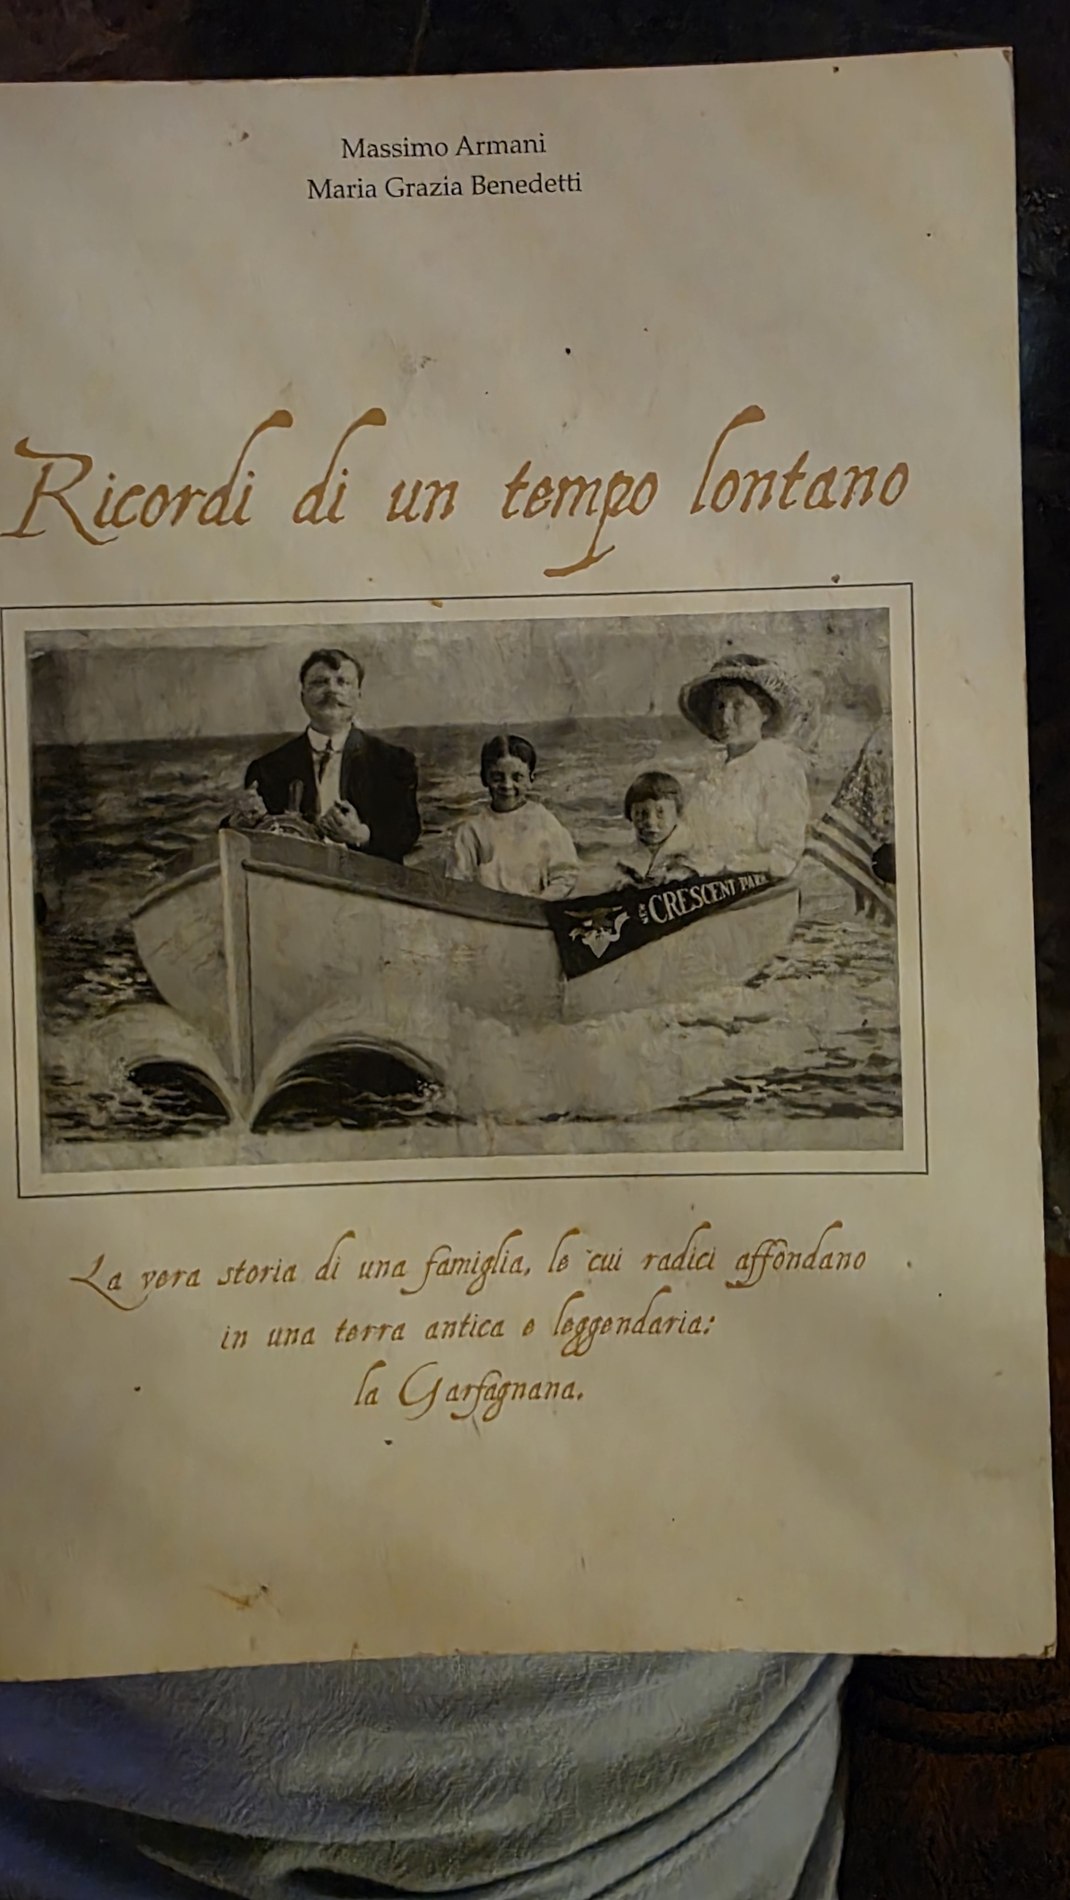 Massimo Armani
Maria Grazia Benedetti
Ricordi di un tempo lontano
NEW CRESCENT PARK
La vera storia di una famiglia, le cui radici affondano
in una terra antica e leggendaria:
la Garfagnana.